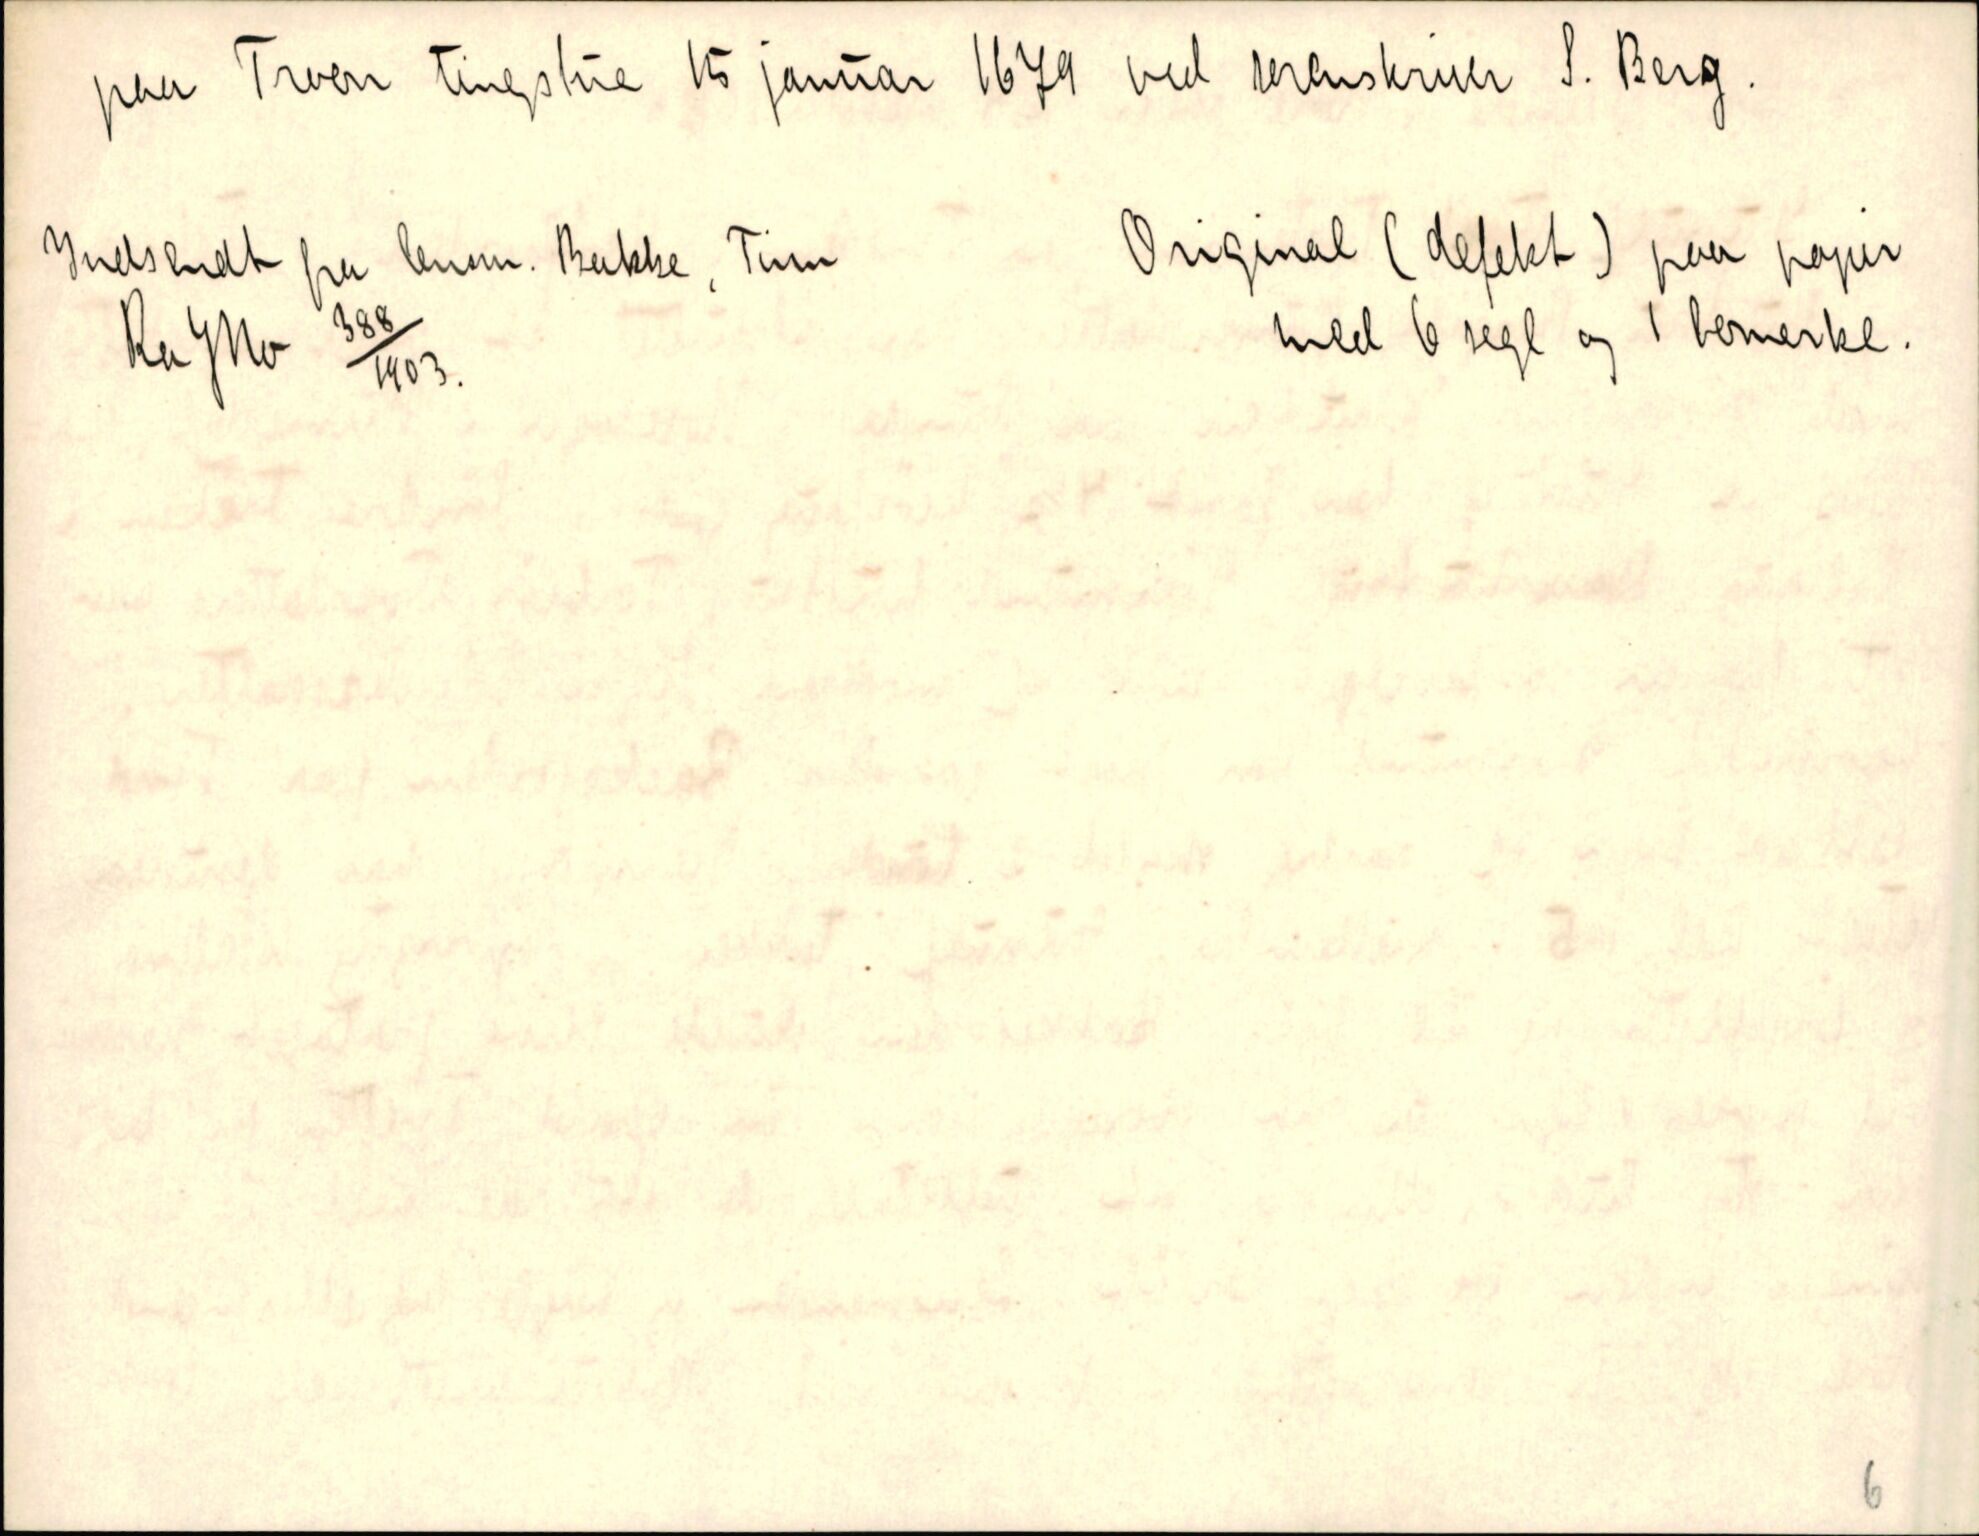 paa Troen tingstue 15 januar 1679 ved sorenskriver S. Berg.
Indsendt fra lensm. Bakke, Tinn
Ra JNo 388/1903.
Original (defekt) paa papir
med 6 segl og 1 bomerke.
6